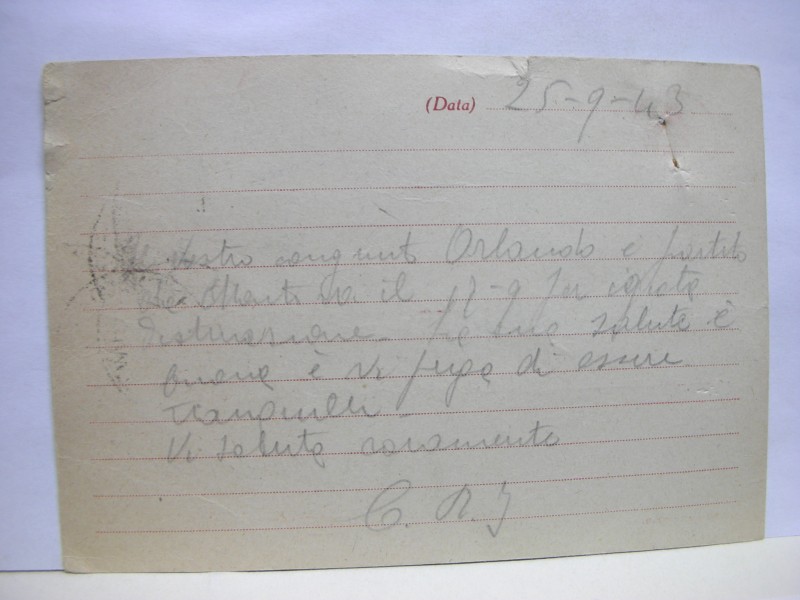 (Data) 25-9-43
Il vostro congiunto Orlando è partito
da Mantova il 17-9 per ignota
destinazione. La sua salute è
buona è vi prega di essere
tranquilli.
Vi saluta caramente
C. R. I